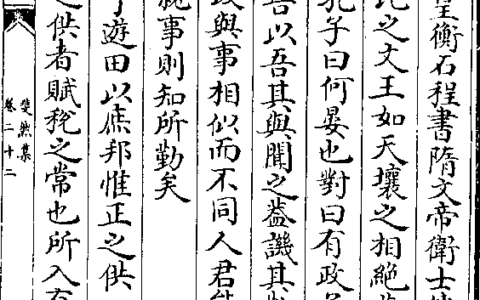 皇衡石程書隋文帝衛士
比之文王如天壤之相絶
孔子曰何晏也對曰有政
吾以吾其與聞之葢譏其
政與事相似而不同人君能
親事則知所勤矣
于遊田以庶邦惟正之供
之供者賦稅之常也所入有
斐然集
卷二十二